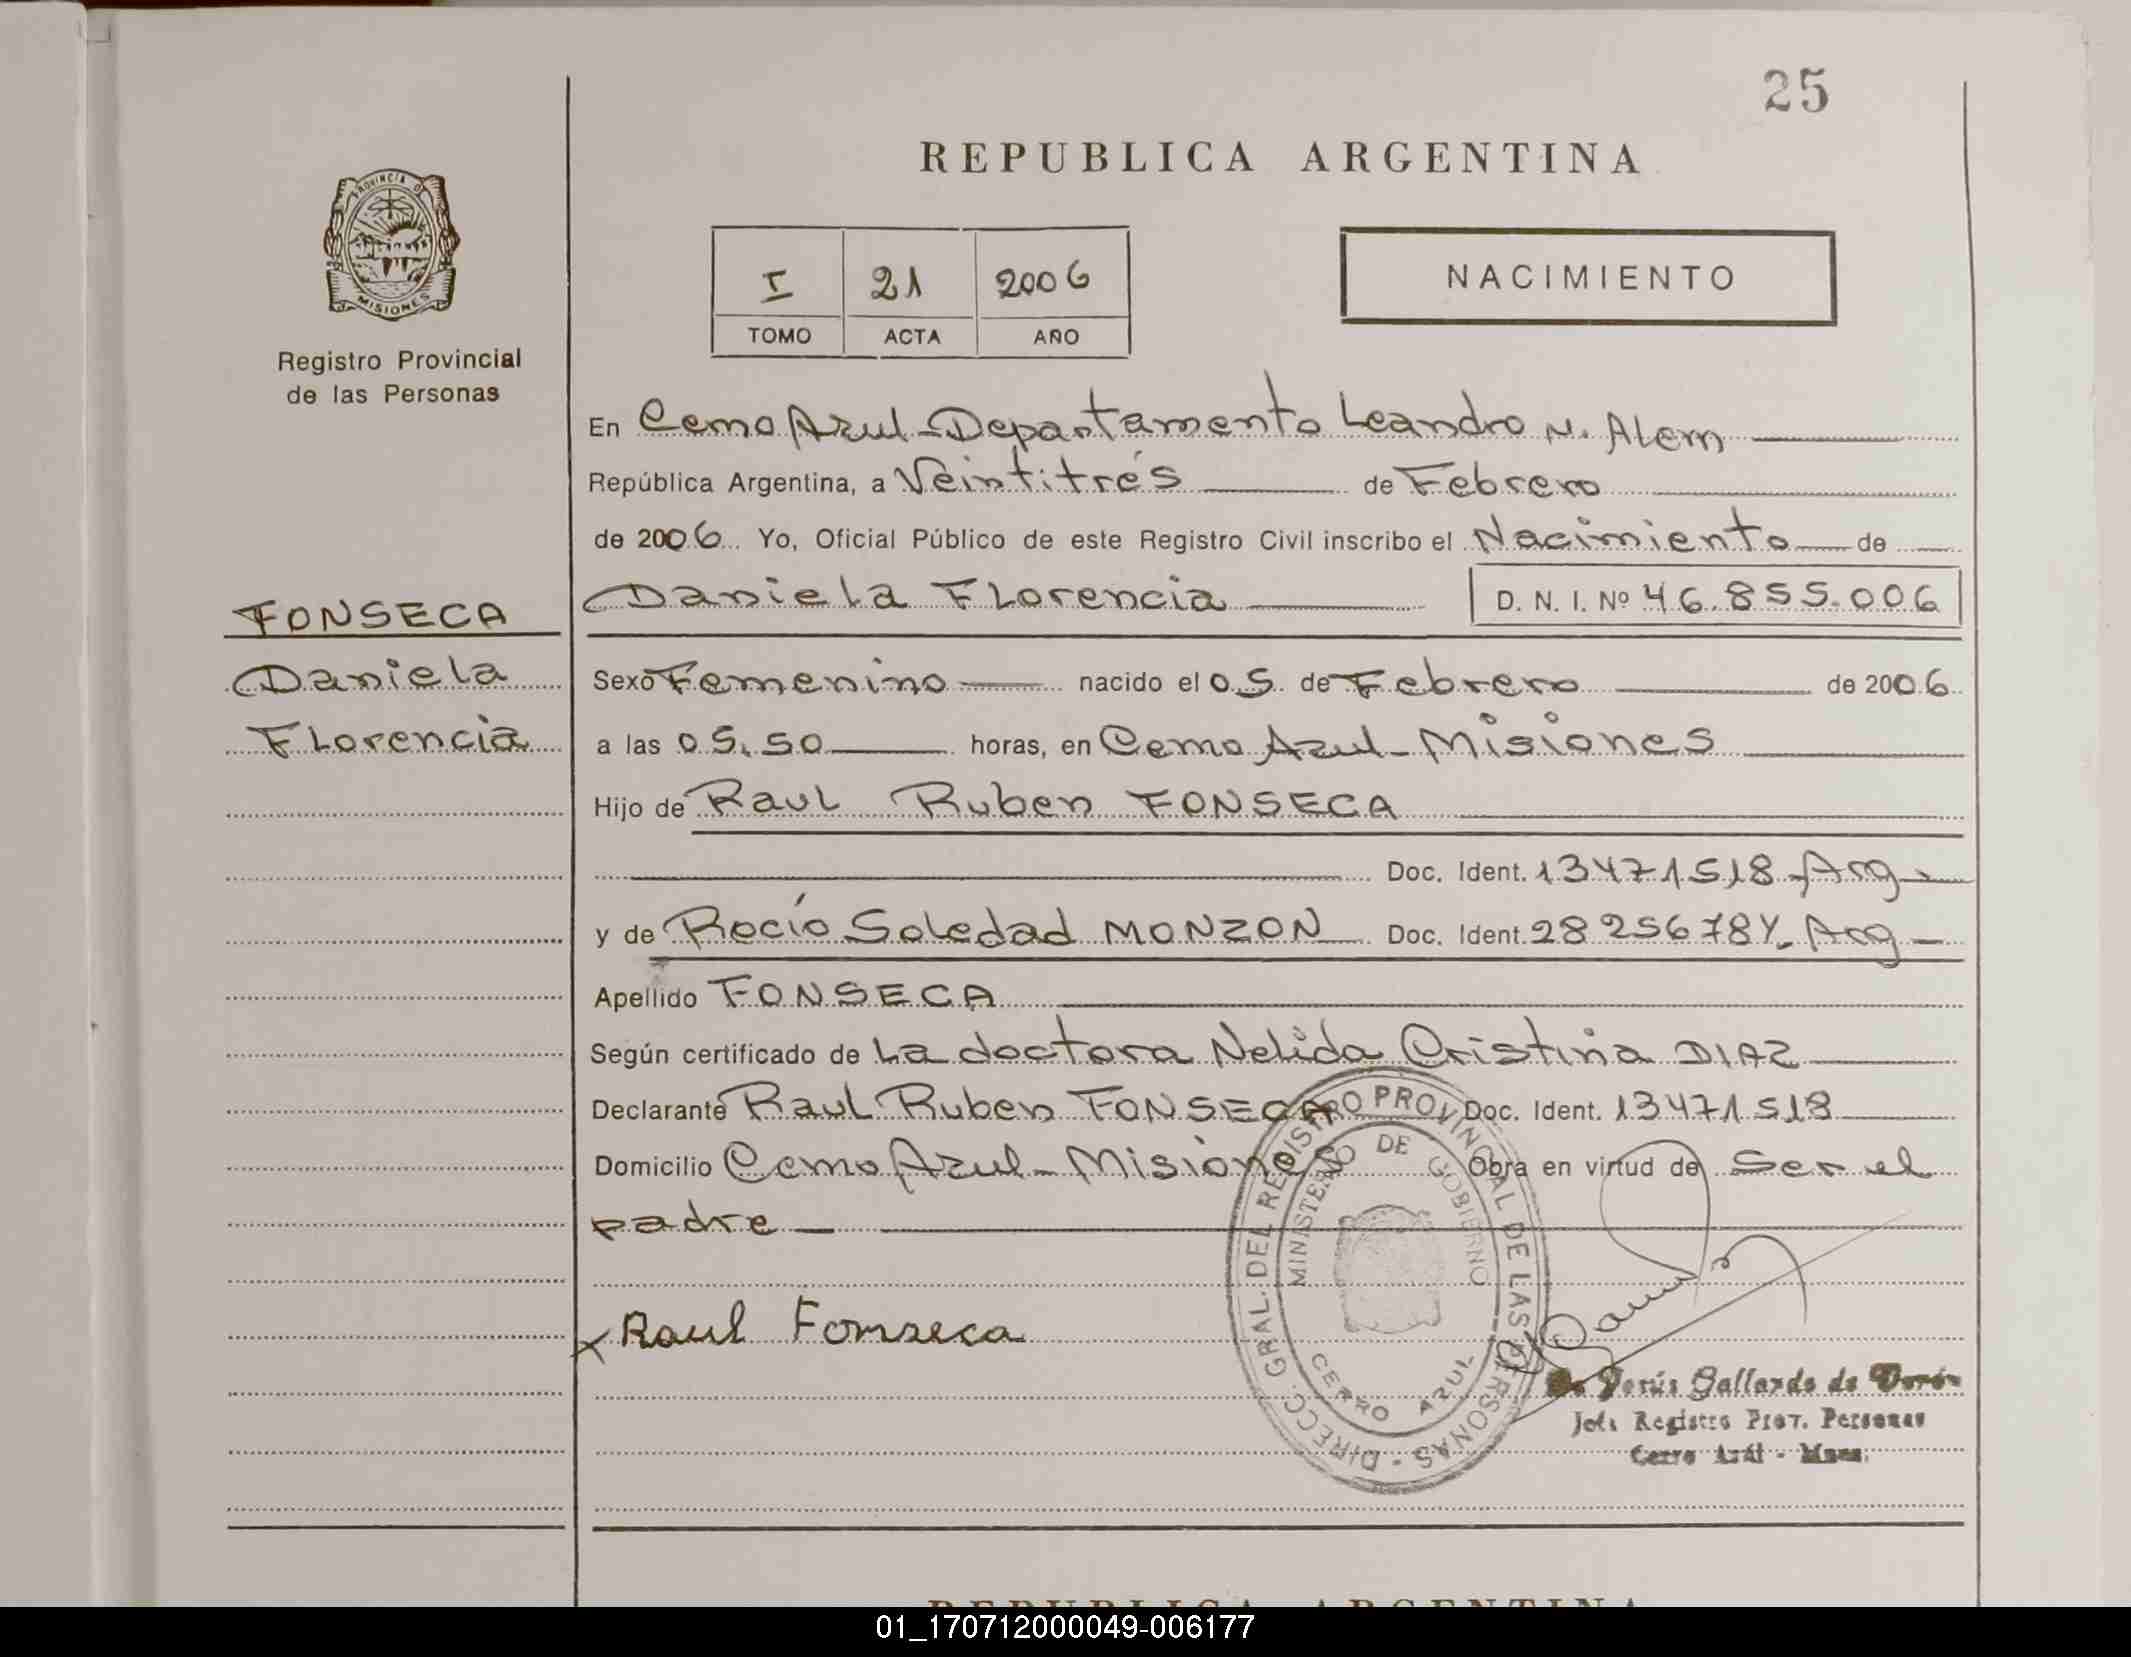 25
REPUBLICA ARGENTINA
PROVINCIA DE
MISIONES
Registro Provincial
de las Personas
I 21 2006
TOMO ACTA AÑO
NACIMIENTO
En Cerro Azul - Departamento Leandro N. Alem
República Argentina, a Veintitrés de Febrero
de 2006 Yo, Oficial Público de este Registro Civil inscribo el Nacimiento de
FONSECA
Daniela Florencia D. N. I. Nº 46.855.006
Daniela
Sexo Femenino nacido el 05 de Febrero de 2006
Florencia
a las 05.50 horas, en Cerro Azul - Misiones
Hijo de Raul Ruben FONSECA
Doc. Ident. 13471518 Arg
y de Rocío Soledad MONZON Doc. Ident. 28256784 - Arg
Apellido FONSECA
Según certificado de La doctora Nelida Cristina DIAZ
Declarante Raul Ruben FONSECA Doc. Ident. 13471518
Domicilio Cerro Azul - Misiones Obra en virtud de Ser el
padre
DIRECC. GRAL. DEL REGISTRO PROVINCIAL DE LAS PERSONAS -
MINISTERIO DE GOBIERNO
CERRO AZUL
x Raul Fonseca
Jesús Gallardo de
Jefe Registro Prov. Personas
Cerro Azul - Mnes.
REPUBLICA ARGENTINA
01_170712000049-006177